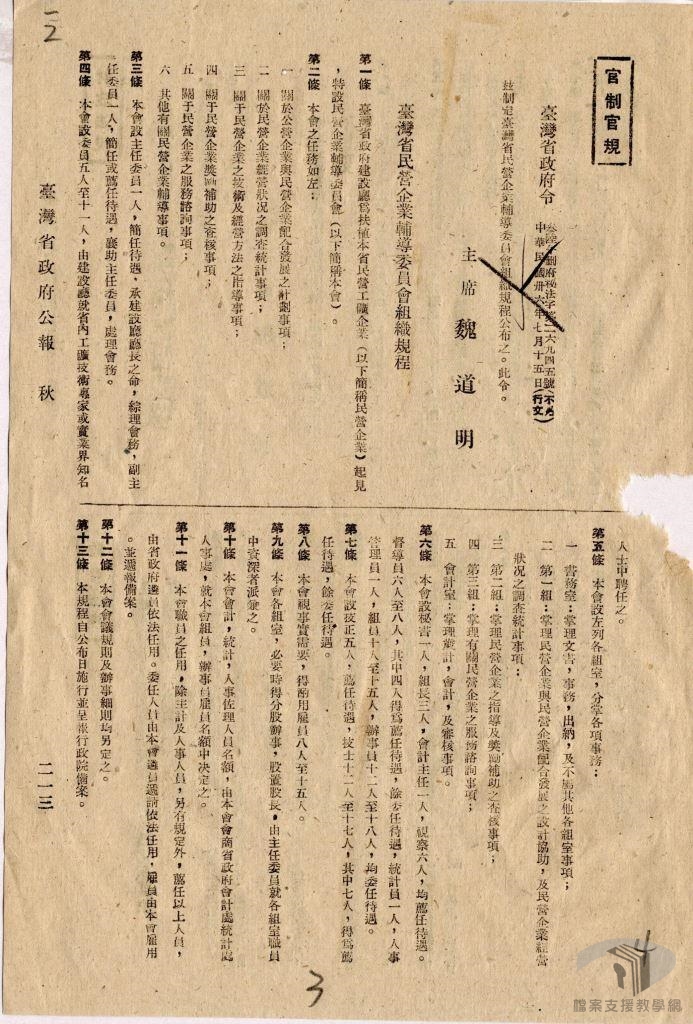 官制官規
臺灣省政府令
中華民國卅六年七月十五日
茲制定臺灣省民營企業輔導委員會組織規程公布之。此令。
主席 魏道明
臺灣省民營企業輔導委員會組織規程
第一條 臺灣省政府建設廳為扶植本省民營工礦企業(以下簡稱民營企業)起見
,特設民營企業輔導委員會(以下簡稱本會)。
第二條 本會之任務如左:
一 關於公營企業與民營企業配合發展之計劃事項;
二 關於民營企業經營狀況之調查統計事項;
三 關于民營企業之技術及經營方法之指導事項;
四 關于民營企業獎勵補助之查核事項;
五 關于民營企業之服務諮詢事項;
六 其他有關民營企業輔導事項。
第三條 本會設主任委員一人,簡任待遇,承建設廳廳長之命,綜理會務,副主
任委員一人,簡任或薦任待遇,襄助主任委員,處理會務。
第四條 本會設委員五人至十一人,由建設廳就省內工礦技術專家或實業界知名
臺灣省政府公報 秋
人士中聘任之。
第五條 本會設左列各組室,分掌各項事務:
一 書務室:掌理文書,事務,出納,及不屬其他各組室事項;
二 第一組:掌理民營企業與民營企業配合發展之設計協助,及民營企業經營
狀況之調查統計事項;
三 第二組:掌理民營企業之指導及獎勵補助之查核事項;
四 第三組:掌理有關民營企業之服務諮詢事項;
五 會計室:掌理歲計,會計,及審核事項。
第六條 本會設秘書一人,組長三人,會計主任一人,視察六人,均薦任待遇。
督導員六人至八人,其中四人得為薦任待遇,餘委任待遇,統計員一人,人事
管理員一人,組員十人至十五人,辦事員十二人至十八人,均委任待遇。
第七條 本會設技正五人,薦任待遇,技士十二人至十七人,其中七人,得為薦
任待遇,餘委任待遇。
第八條 本會視事實需要,得酌用雇員八人至十五人。
第九條 本會各組室,必要時得分股辦事,股置股長,由主任委員就各組室職員
中資深者派兼之。
第十條 本會會計,統計,人事佐理人員名額,由本會會商省政府會計處統計處
人事處,就本會組員,辦事員雇員名額中決定之。
第十一條 本會職員之任用,除主計及人事人員,另有規定外,薦任以上人員,
由省政府遴員依法任用。委任人員由本會遴員遞請依法任用,雇員由本會雇用
。並遞報備案。
第十二條 本會會議規則及辦事細則均另定之。
第十三條 本規程自公布日施行並呈報行政院備案。
二一三
3
檔案支援教學網